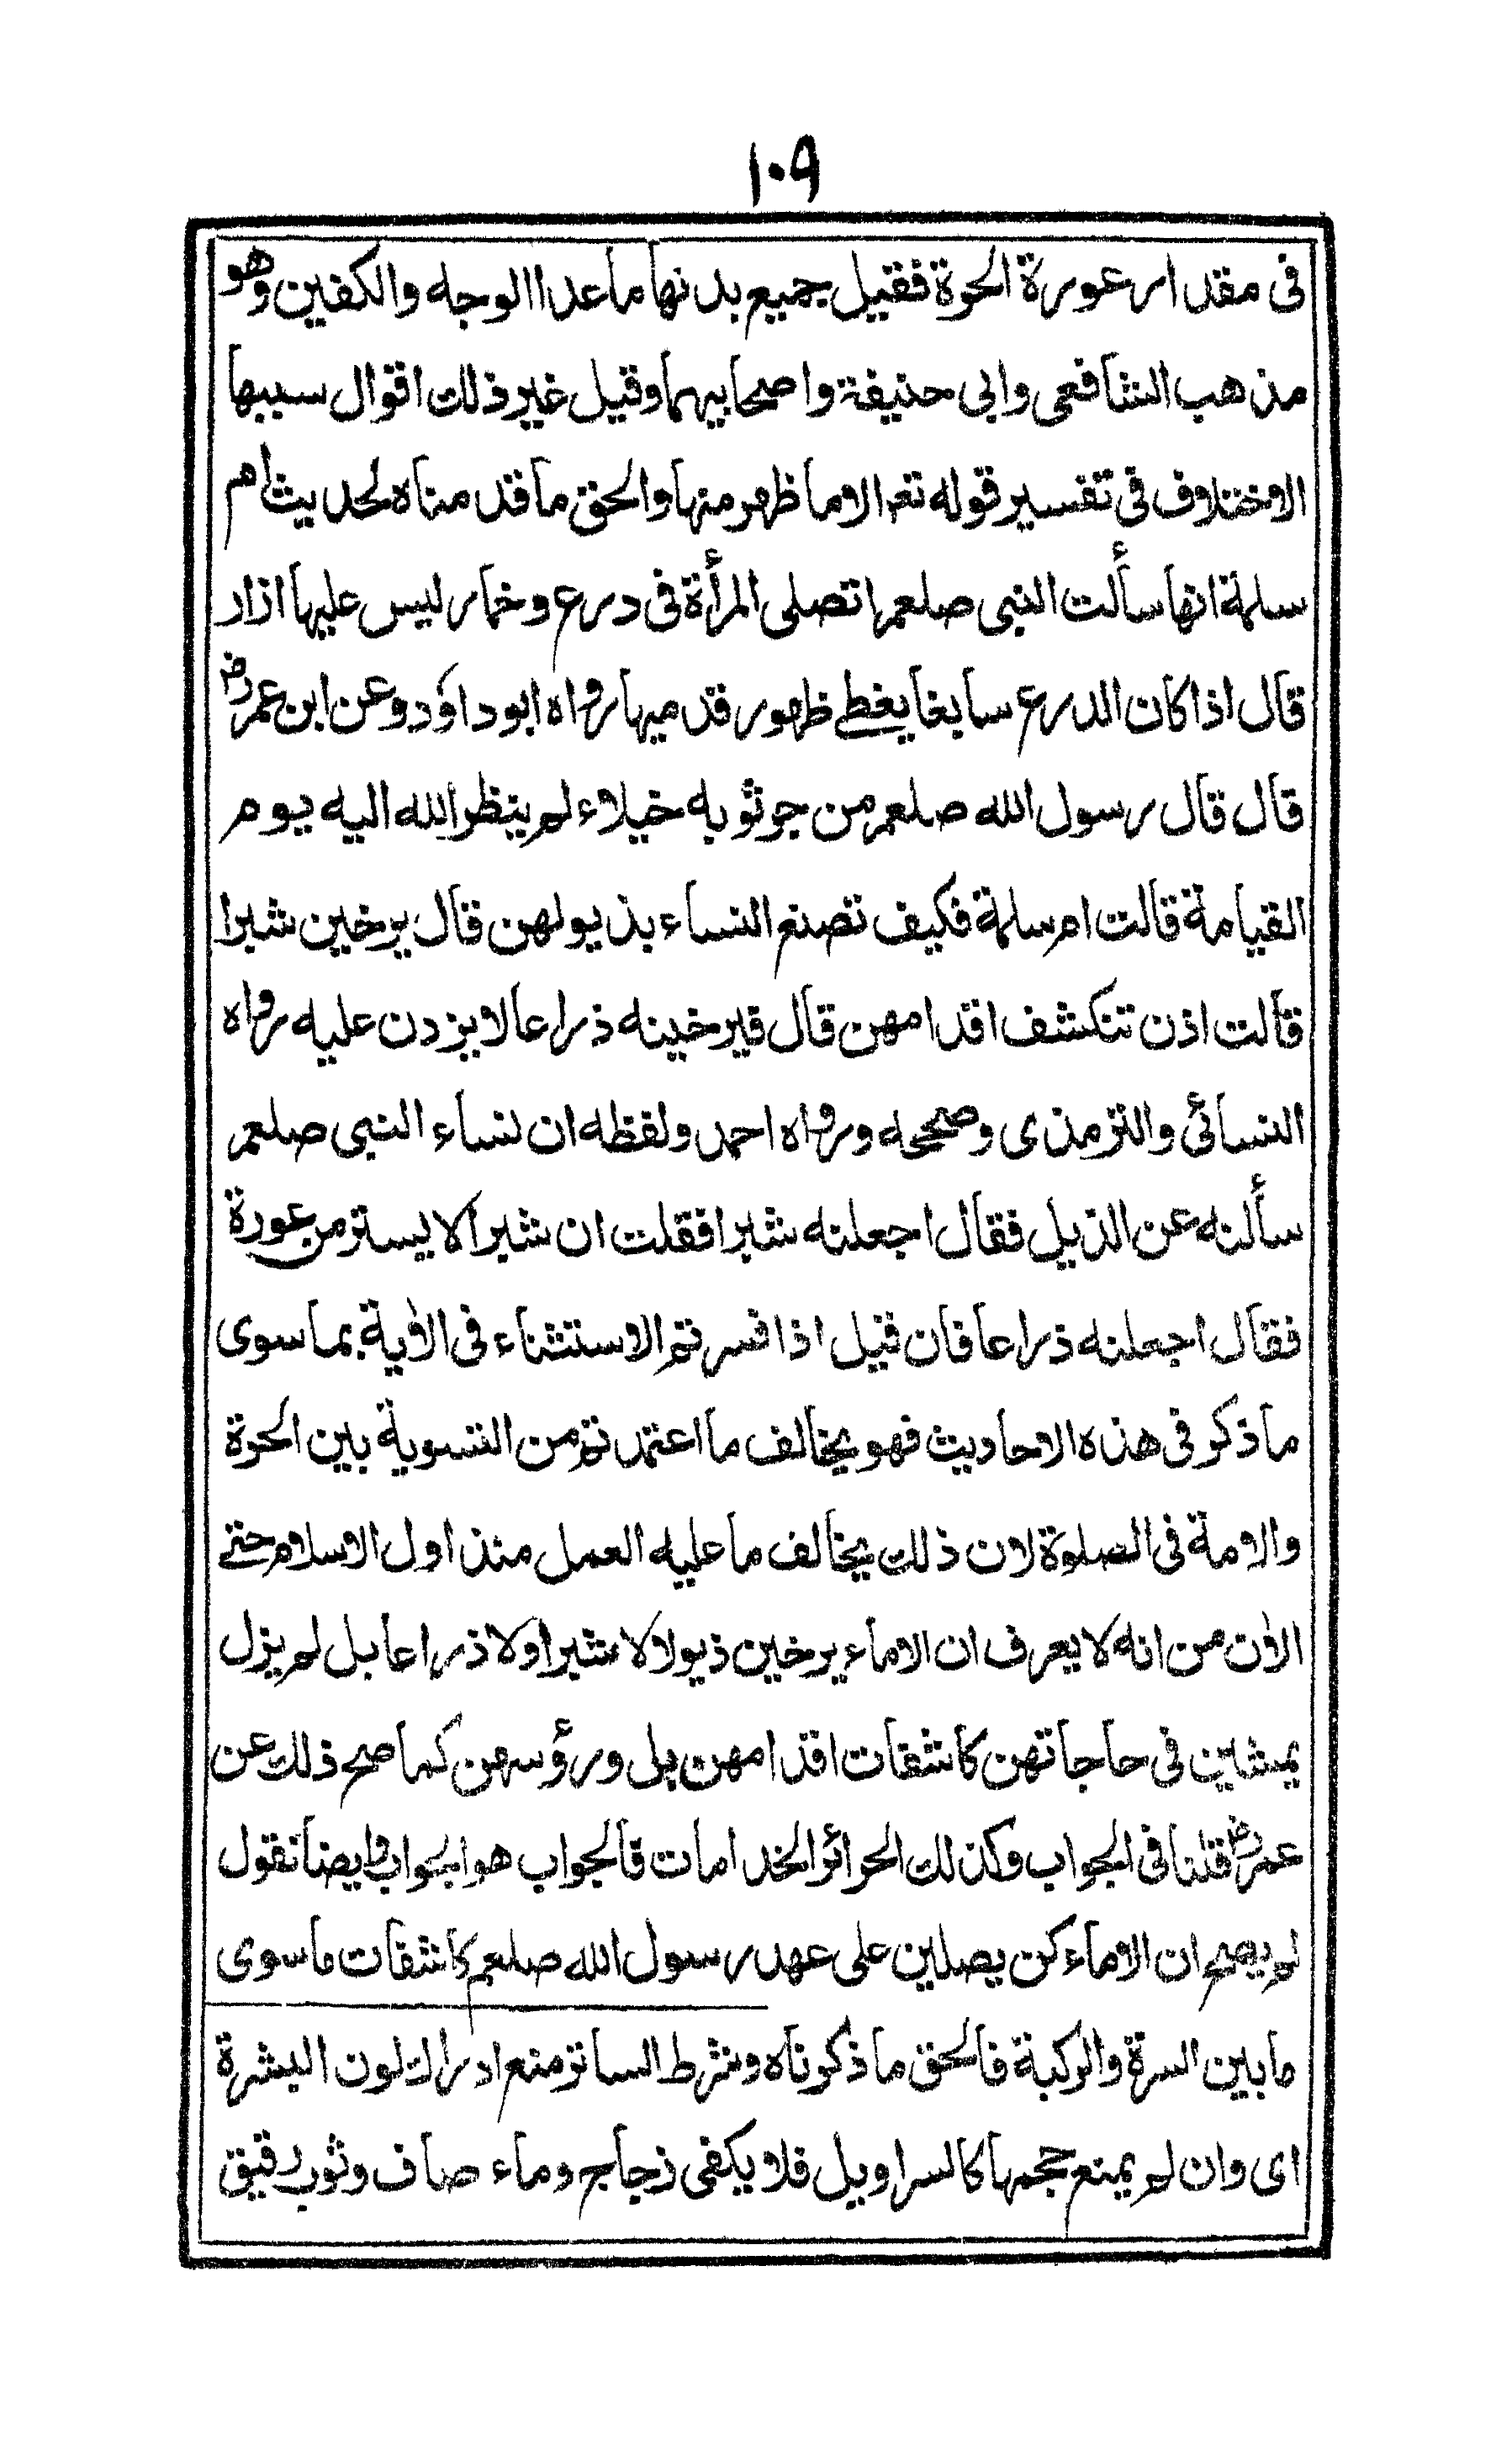 ١٠٩
فى مقدار عورة الحرة فقيل جميع بدنها ما عدا الوجه والكفين وهو
مذهب الشافعى وابى حنيفة واصحابيهما وقيل غير ذلك اقوال سببها
الاختلاف فى تفسير قوله تعه الا ما ظهر منها والحق ما قدمناه لحديث ام
سلمة انها سألت النبى صلعم اتصلى المرأة فى درع وخمار ليس عليها ازار
قال اذا كان الدرع سابغا يغطے ظهور قدميها رواه ابو داؤد وعن ابن عمر رض
قال قال رسول الله صلعم من جر ثوبه خيلاء لم ينظر الله اليه يوم
القيامة قالت ام سلمة فكيف تصنع النساء بذيولهن قال يرخين شبرا
قالت اذن تنكشف اقدامهن قال فيرخينه ذراعا لا يزدن عليه رواه
النسائى والترمذى وصححه ورواه احمد ولفظه ان نساء النبى صلعم
سألنه عن الذيل فقال اجعلنه شبرا فقلت ان شبرا لا يستر من عورة
فقال اجعلنه ذراعا فان قيل اذا فسرتم الاستثناء فى الاٰية بما سوى
ما ذكر فى هذه الاحاديث فهو يخالف ما اعتمدتم من التسوية بين الحرة
والامة فى الصلوة لان ذلك يخالف ما عليه العمل منذ اول الاسلام حتے
الاٰن من انه لا يعرف ان الاماء يرخين ذيولا لا شبرا ولا ذراعا بل لم يزل
يمشين فى حاجاتهن كاشفات اقدامهن بل ورؤسهن كما صح ذلك عن
عمر رض قلنا فى الجواب وكذلك الحرائر الخدامات فالجواب هو الجواب وايضا نقول
لم يصح ان الاماء كن يصلين على عهد رسول الله صلعم كاشفات ما سوى
ما بين السرة والركبة فالحق ما ذكرناه وشرط الساتر منع ادراك لون البشرة
اى وان لم يمنع حجمها كالسراويل فلا يكفى زجاج وماء صاف وثوب رقيق